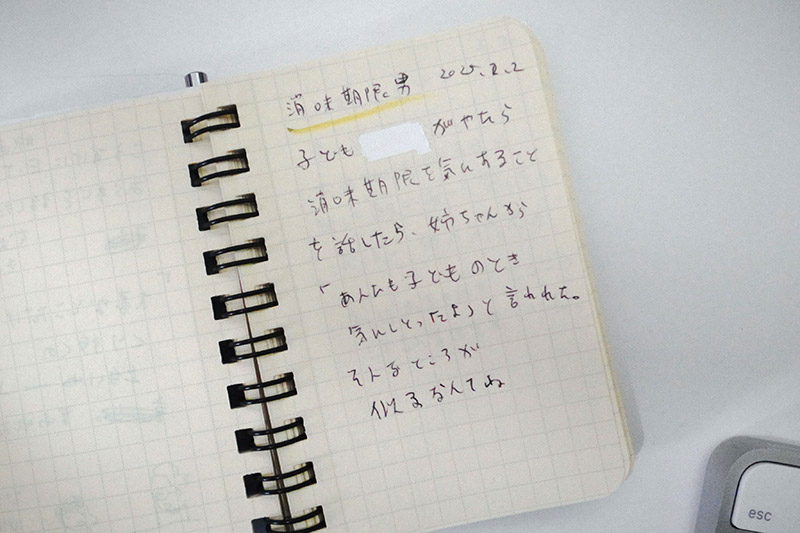 消味期限男 2025.2.2
子ども がやたら
消味期限を気にすること
を話したら、姉ちゃんから
「あんたも子どものとき
気にしとったよ」と言われた。
そんなところが
似るなんてね
esc